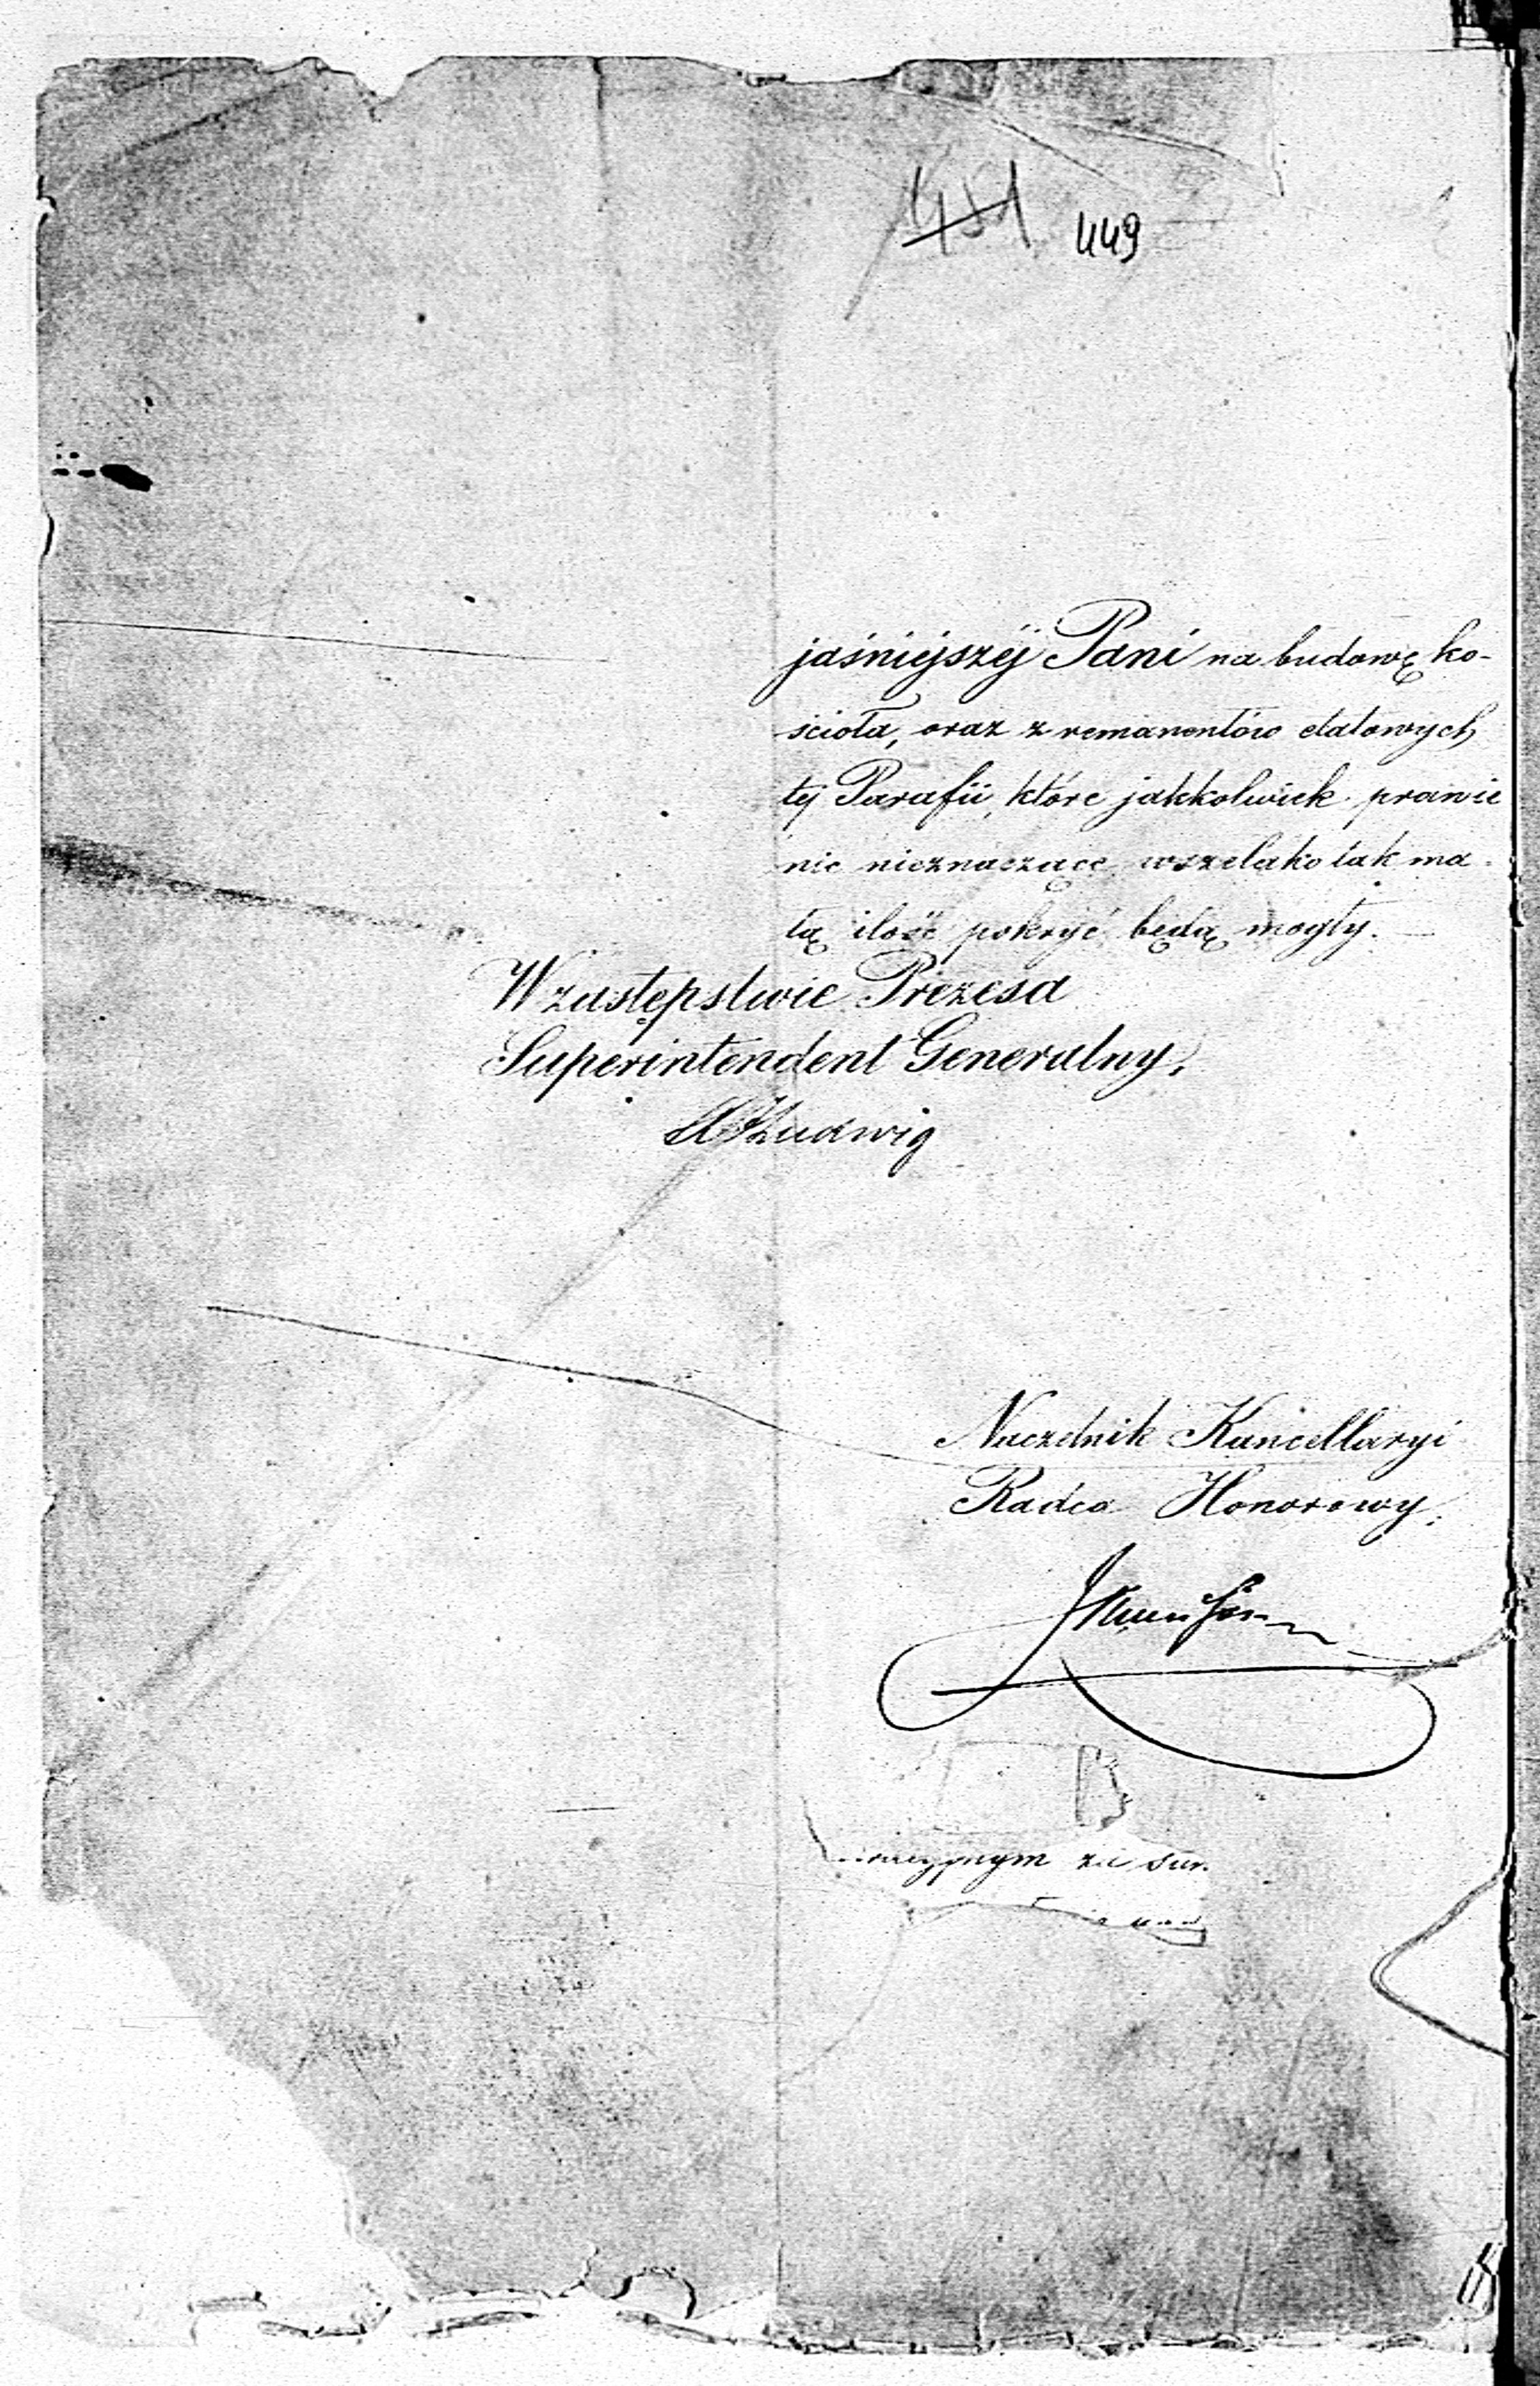 451 449
jaśniejszéj Pani na budowę ko-
ścioła, oraz z remanentów etatowych
téj Parafii, które jakkolwiek prawie
nic nieznaczące, wszelako tak ma-
łą ilość pokryć będą mogły.
W zastępstwie Prezesa
Superintendent Generalny,
Ludwig
Naczelnik Kancellaryi
Radca Honorowy,
nym za sum